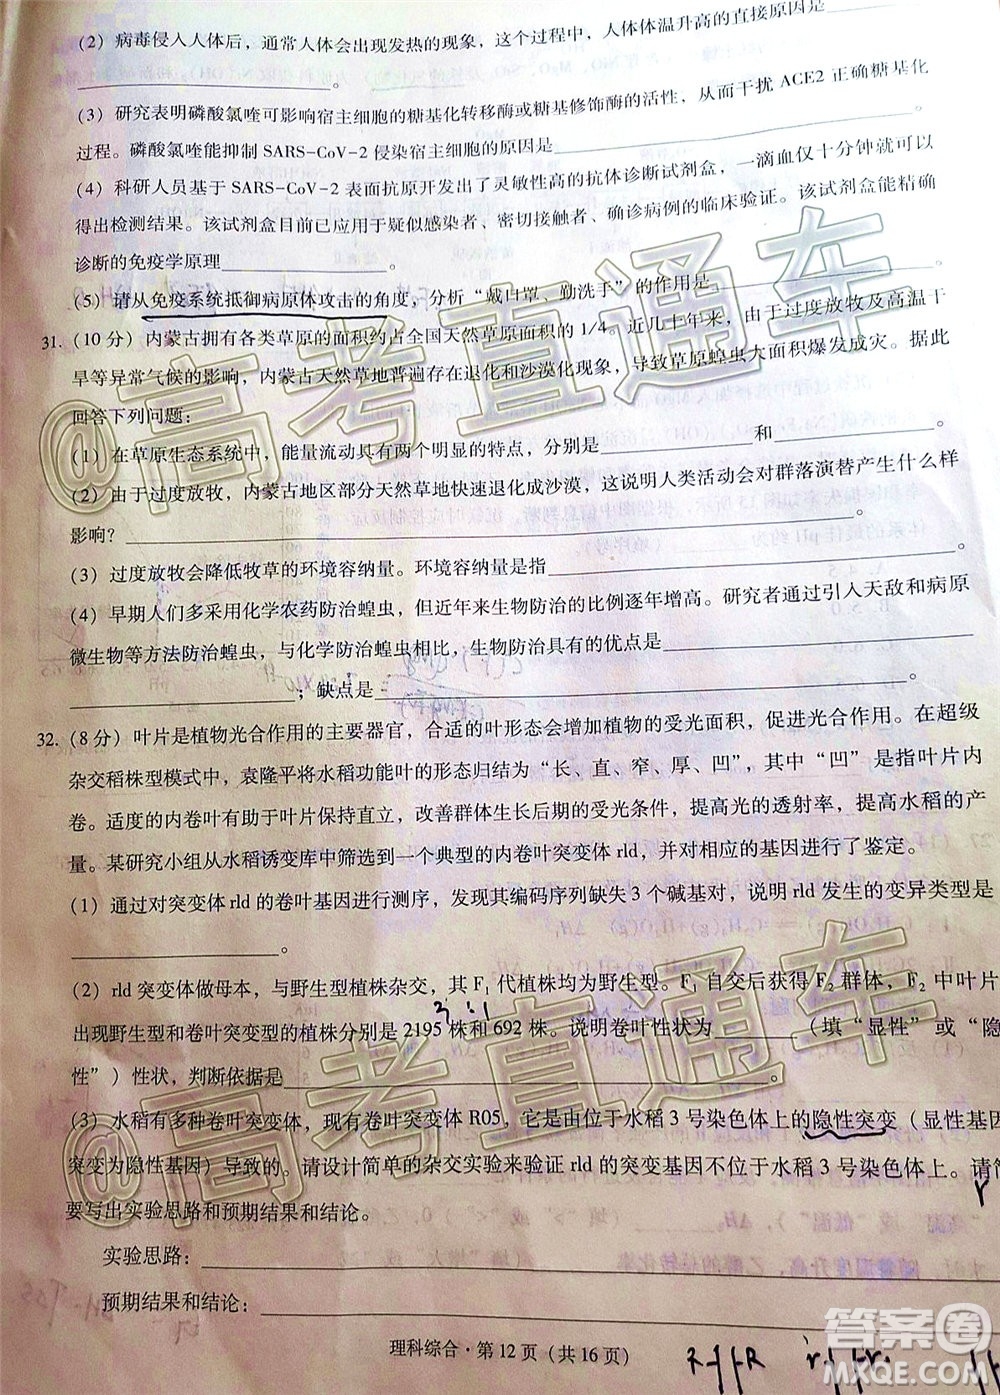 (2) 病毒侵入人体后，通常人体会出现发热的现象，这个过程中，人体体温升高的直接原因是
。
(3) 研究表明磷酸氯喹可影响宿主细胞的糖基化转移酶或糖基修饰酶的活性，从而干扰 ACE2 正确糖基化
过程。磷酸氯喹能抑制 SARS-CoV-2 侵染宿主细胞的原因是 。
(4) 科研人员基于 SARS-CoV-2 表面抗原开发出了灵敏性高的抗体诊断试剂盒，一滴血仅十分钟就可以
得出检测结果。该试剂盒目前已应用于疑似感染者、密切接触者、确诊病例的临床验证。该试剂盒能精确
诊断的免疫学原理 。
(5) 请从免疫系统抵御病原体攻击的角度，分析“戴口罩、勤洗手”的作用是 。
31. (10 分) 内蒙古拥有各类草原的面积约占全国天然草原面积的 1/4。近几十年来，由于过度放牧及高温干
旱等异常气候的影响，内蒙古天然草地普遍存在退化和沙漠化现象，导致草原蝗虫大面积爆发成灾。据此
回答下列问题：
(1) 在草原生态系统中，能量流动具有两个明显的特点，分别是 和 。
(2) 由于过度放牧，内蒙古地区部分天然草地快速退化成沙漠，这说明人类活动会对群落演替产生什么样
影响？ 。
(3) 过度放牧会降低牧草的环境容纳量。环境容纳量是 。
(4) 早期人们多采用化学农药防治蝗虫，但近年来生物防治的比例逐年增高。研究者通过引入天敌和病原
微生物等方法防治蝗虫，与化学防治蝗虫相比，生物防治具有的优点是
；缺点是 。
32. (8 分) 叶片是植物光合作用的主要器官，合适的叶形态会增加植物的受光面积，促进光合作用。在超级
杂交稻株型模式中，袁隆平将水稻功能叶的形态归结为“长、直、窄、厚、凹”，其中“凹”是指叶片内
卷。适度的内卷叶有助于叶片保持直立，改善群体生长后期的受光条件，提高光的透射率，提高水稻的产
量。某研究小组从水稻诱变库中筛选到一个典型的内卷叶突变体 rld，并对相应的基因进行了鉴定。
(1) 通过对突变体 rld 的卷叶基因进行测序，发现其编码序列缺失 3 个碱基对，说明 rld 发生的变异类型是
。
(2) rld 突变体做母本，与野生型植株杂交，其 F₁ 代植株均为野生型。F₁ 自交后获得 F₂ 群体，F₂ 中叶片
3 : 1
出现野生型和卷叶突变型的植株分别是 2195 株和 692 株。说明卷叶性状为 (填“显性”或“隐
性”) 性状，判断依据是 。
(3) 水稻有多种卷叶突变体，现有卷叶突变体 R05。它是由位于水稻 3 号染色体上的隐性突变 (显性基因
突变为隐性基因) 导致的。请设计简单的杂交实验来验证 rld 的突变基因不位于水稻 3 号染色体上。请简
要写出实验思路和预期结果和结论。
实验思路：
预期结果和结论：
理科综合·第 12 页 (共 16 页)
@高考直通车
@高考直通车
答案圈
MXQE.COM